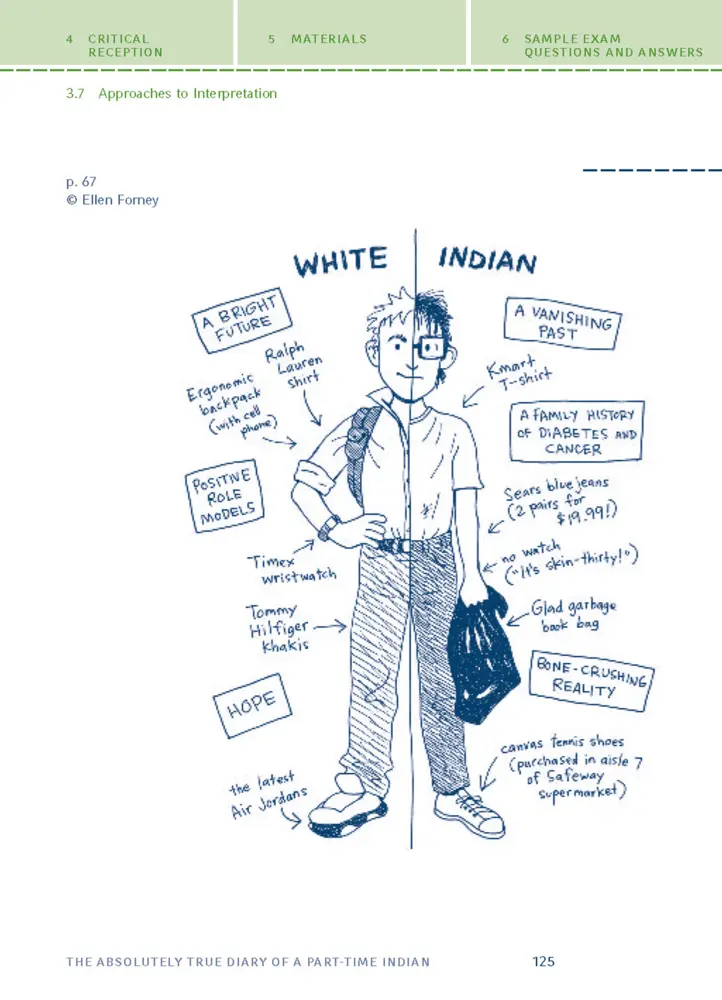 4 CRITICAL
RECEPTION
5 MATERIALS
6 SAMPLE EXAM
QUESTIONS AND ANSWERS
3.7 Approaches to Interpretation
p. 67
© Ellen Forney
WHITE
INDIAN
A BRIGHT
FUTURE
Ralph
Lauren
shirt
Ergonomic
backpack
(with cell
phone)
POSITIVE
ROLE
MODELS
Timex
wristwatch
Tommy
Hilfiger
khakis
HOPE
the latest
Air Jordans
A VANISHING
PAST
Kmart
T-shirt
A FAMILY HISTORY
OF DIABETES AND
CANCER
Sears blue jeans
(2 pairs for
$19.99!)
no watch
("It's skin-thirty!")
Glad garbage
book bag
BONE-CRUSHING
REALITY
canvas tennis shoes
(purchased in aisle 7
of Safeway
supermarket)
THE ABSOLUTELY TRUE DIARY OF A PART-TIME INDIAN
125